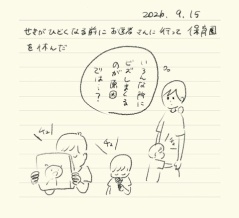 2026. 9. 15
せきがひどくなる前にお医者さんに行って保育園
を休んだ
いろんな所に
ちゅーしまくる
のが原因
では…?
ちゅ!
ちゅ!